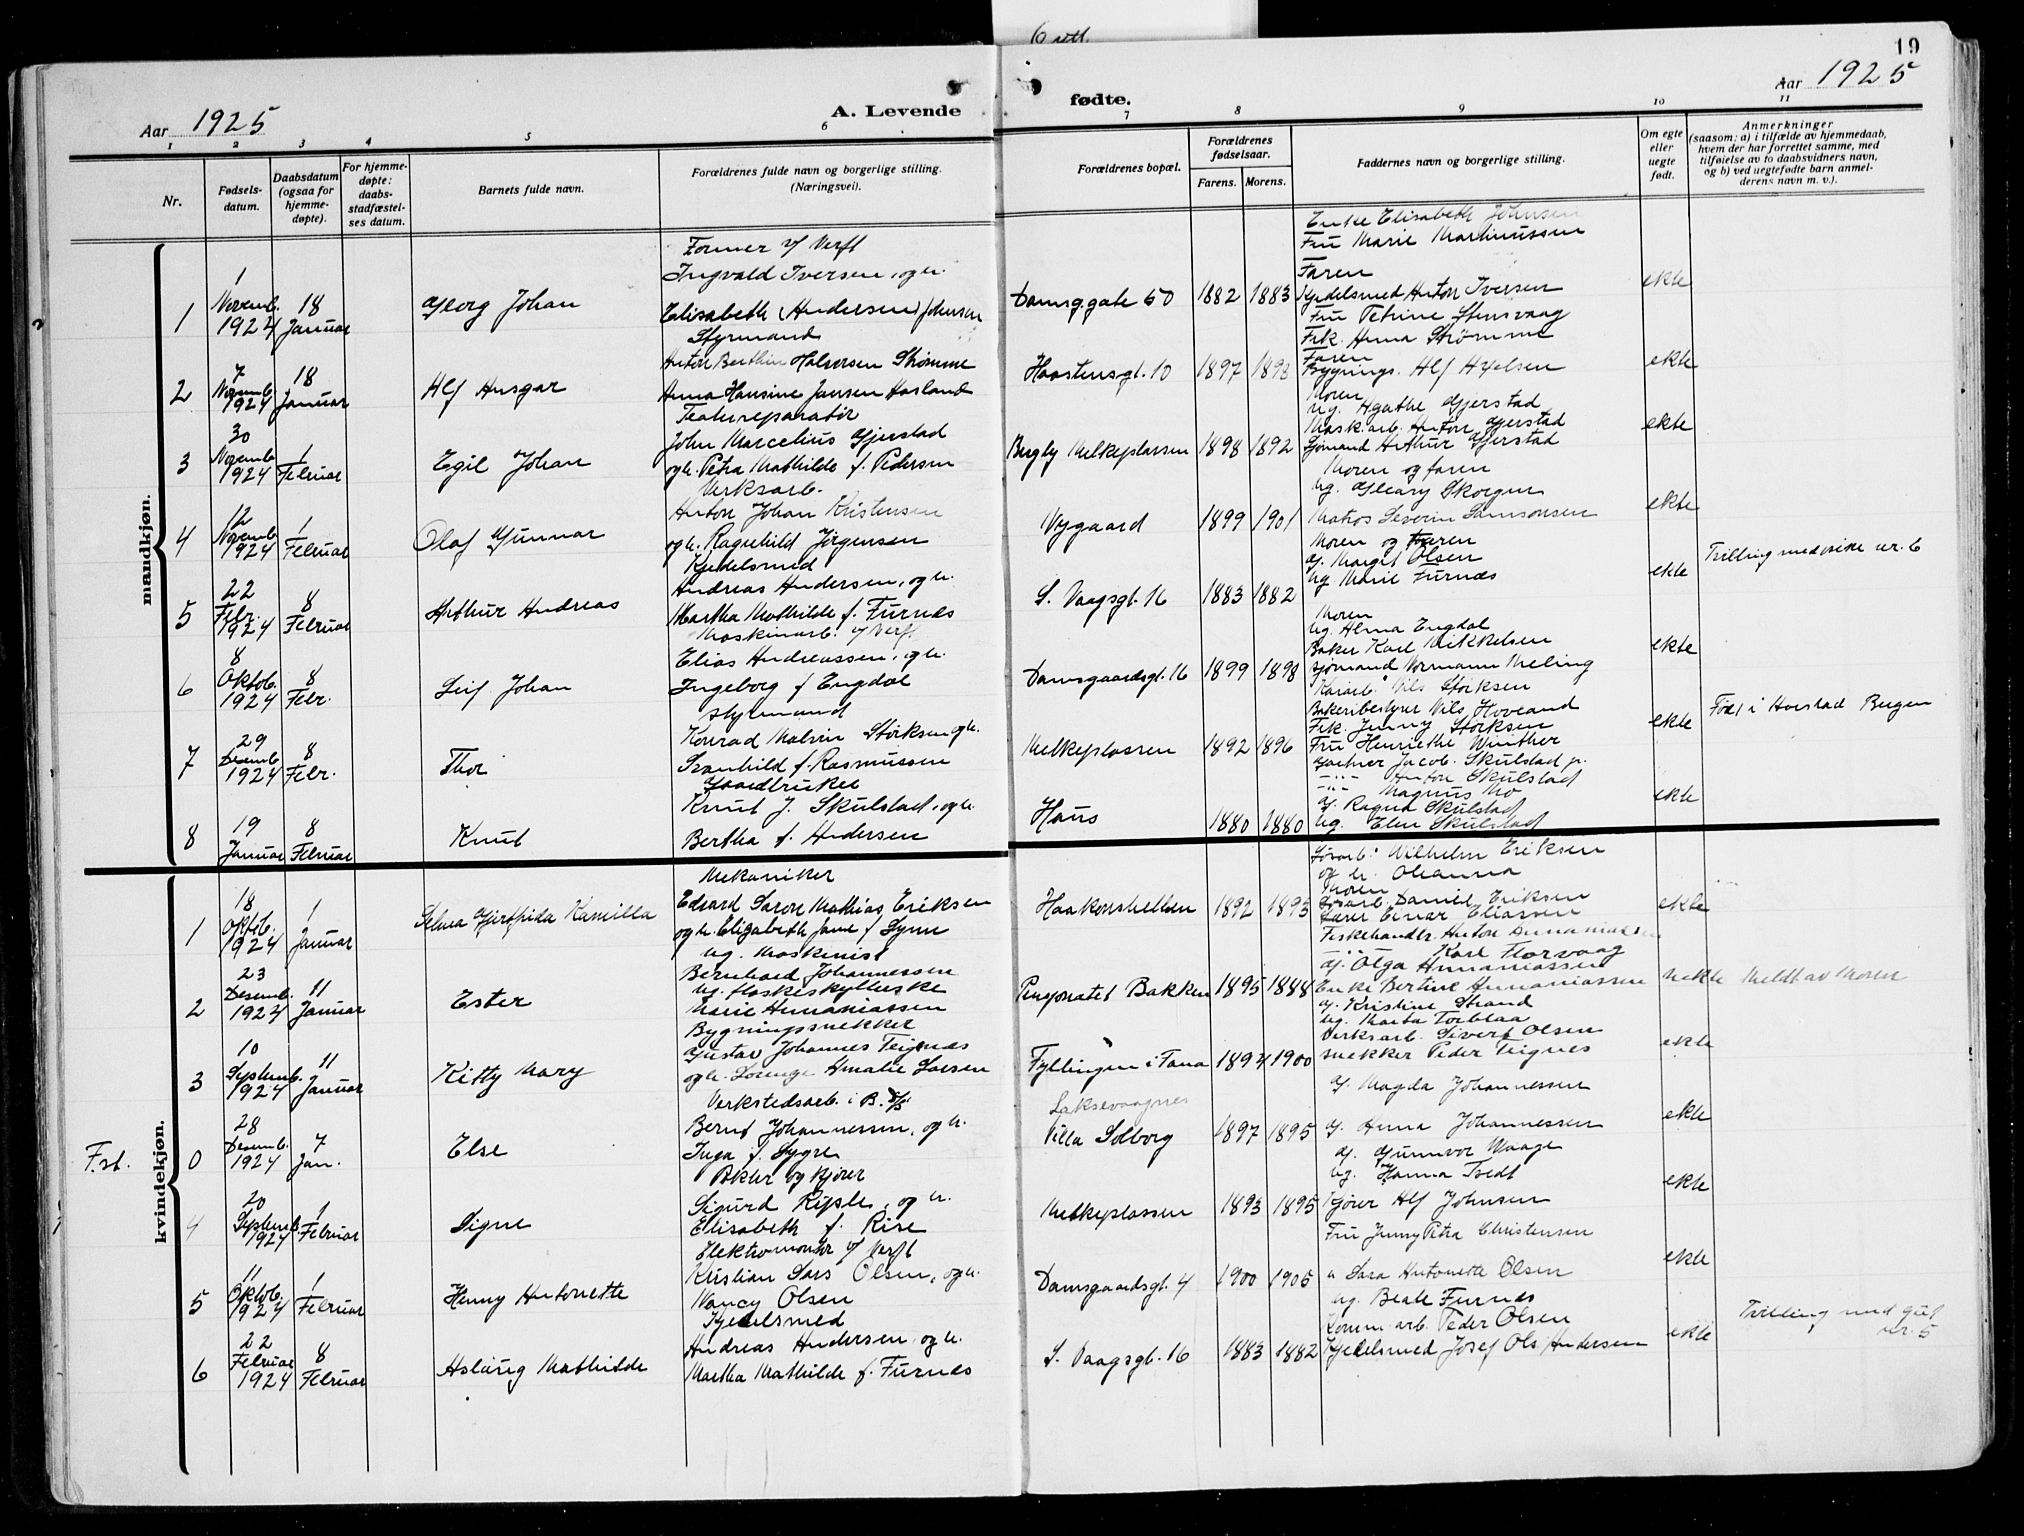 6 vtl.
19
Aar 1925
A. Levende fødte.
Aar 1925
1 2 3 4 5 6 7 8 9 10 11
Nr.
Fødsels-datum.
Daabsdatum (ogsaa for hjemme-døpte).
For hjemme-døpte: daabs-stadfæstel-ses datum.
Barnets fulde navn.
Forældrenes fulde navn og borgerlige stilling. (Næringsvei).
Forældrenes bopæl.
Forældrenes fødselsaar.
Farens. Morens.
Faddernes navn og borgerlige stilling.
Om egte eller uegte født.
Anmerkninger (saasom: a) i tilfælde av hjemmedaab, hvem der har forrettet samme, med tilføielse av to daabsvidners navn, og b) ved uegtefødte barn anmel-derens navn m. v.).
mandkjøn.
1
1 Novemb. 1924
18 Januar
Georg Johan
Former v/ Verft
Ingvald Iversen, og h.
Elisabeth (Andersen) Johnsen
Damsg.gate 50
1882 1883
Enke Elisabeth Johnsen
Fru Marie Martinussen
Faren
Kjedelsmed Anton Iversen
ekte
2
7 Novemb. 1924
18 Januar
Alf Ansgar
Styrmand
Anton Berthin Halvorsen Strømme
Anna Hansine Jansen Harland
Haastensgt. 10
1897 1898
Fru Petrine Stensvaag
Frk. Anna Strømme
Faren
Bygnings. Alf Axelsen
ekte
3
30 Novemb. 1924
1 Februar
Egil Johan
John Marcelius Gjerstad
og h. Petra Mathilde f. Pedersen
Bergly Melkeplassen
1898 1892
Moren
Ug. Agathe Gjerstad
Mask.arb. Anton Gjerstad
Sjømand Arthur Gjerstad
ekte
4
12 Novemb. 1924
1 Februar
Olaf Gunnar
Verksarb.
Anton Johan Kristensen
og h. Ragnhild Jörgensen
Nygaard
1899 1901
Moren og faren
Ug. Skorgen
Matros Severin Samsonsen
ekte
5
22 Febr. 1924
8 Februar
Arthur Andreas
Kjedelsmed
Andreas Andersen, og h.
Martha Mathilde f. Furnes
S. Vaagsgt. 16
1883 1882
Moren og Faren
g. Margit Olsen
ug. Marie Furnæs
ekte
Trilling med pike nr. 6
6
8 Oktob. 1924
8 Febr.
Leif Johan
Maskinarb. v/ Verft
Elias Andreassen, og h.
Ingeborg f Engdal
Damsgaardsgt. 16
1899 1898
Moren
Ug. Alma Engdal
Baker Karl Mikkelsen
Sjømand Normann Meling
ekte
7
29 Desemb. 1924
8 Febr.
Thor
Styrmand
Konrad Malvin Storksen og h.
Svanhild f. Rasmussen
Melkeplassen
1892 1896
Nils Storksen
Bakeribestyrer Nils Hoveland
Frk. Jenny Storksen
Fru Henriette Winther
ekte
Født i Bergen
8
19 Januar
8 Februar
Knut
Gaardbruker
Knut J. Skulstad, og h.
Bertha f. Andersen
Haus
1880 1880
Gartner Jacob Skulstad jr.
-"- Anton Skulstad
-"- Magnus Mo
g. Ragna Skulstad
Ug. Elen Skulstad
ekte
kvindekjøn.
1
18 Oktob. 1924
1 Januar
Selma Gjertrida Kamilla
Mekaniker
Edvard Saron Mathias Eriksen
og h. Elizabeth Jane f Synn
Haakonshellen
1892 1893
Løsarb. Wilhelm Eriksen
og h. Oleanna
Moren
Løsarb. Daniel Eriksen
Lærer Einar Eliassen
ekte
2
23 Desemb. 1924
11 Januar
Ester
ug. Maskinist
Bernhard Johannessen
Ug. flaskeskyllerske
Marie Annaniassen
Pensjonatet Bakken
1895 1888
Fiskehandl. Anton Annaniassen
-"- Karl Florvaag
g. Olga Annaniassen
Enke Bertine Annaniassen
uekte
Meldt av Moren
3
10 Septemb. 1924
11 Januar
Kitty Mary
Bygningssnekker
Gustav Johannes Teignæs
og h. Lorenze Amalie Larsen
Fyllingen i Fana
1894 1900
g. Kristine Strand
ug. Marta Torblaa
Verksarb. Sivert Olsen
snekker Peder Teignes
ekte
F.st.
0
28 Desemb. 1924
7 Jan.
Else
Verkstedsarb. i B.
Bernt Johannessen, og h.
Inga f. Sygre
Laksevaagnes
Villa Solborg
1897 1895
g. Magda Johannessen
g. Anna Johannessen
ekte
4
20 Septemb. 1924
1 Februar
Signe
Pakker og kjører
Sigurd Ripsle, og h.
Elisabeth f. Rise
Melkeplassen
1893 1895
g. Gunnvor Waage
ug. Hanna Tvedt
Kjører Alf Johnsen
ekte
5
11 Oktob. 1924
1 Februar
Henny Antonette
Elektromontør v/ Verft
Kristian Lars Olsen, og h.
Nancy Olsen
Damsgaardsgt. 4
1900 1905
Fru Jenny Petra Christensen
" Sara Antonette Olsen
ekte
6
22 Februar 1924
8 Februar
Aslaug Mathilde
Kjedelsmed
Andreas Andersen og h.
Martha Mathilde f. Furnes
S. Vaagsgt. 16
1883 1882
Ug. Beate Furnes
Komm.arb. Peder Olsen
Kjedelsmed Josef Ols. Andersen
ekte
Trilling med gut nr. 5